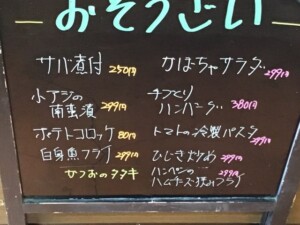 おそうざい
サバ煮付 250円
小アジの
南蛮漬 299円
ポテトコロッケ 80円
白身魚フライ 299円
かつおのタタキ
かぼちゃサラダ 299円
手づくり
ハンバーグ 380円
トマトの冷製パスタ 399円
ひじき炒め 299円
ハンペンの
ハムチーズ挟みフライ 299円